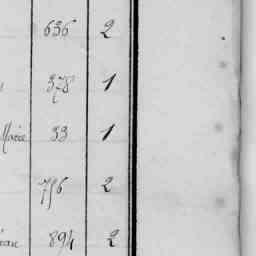 636 2
378 1
Marie 33 1
796 2
894 2